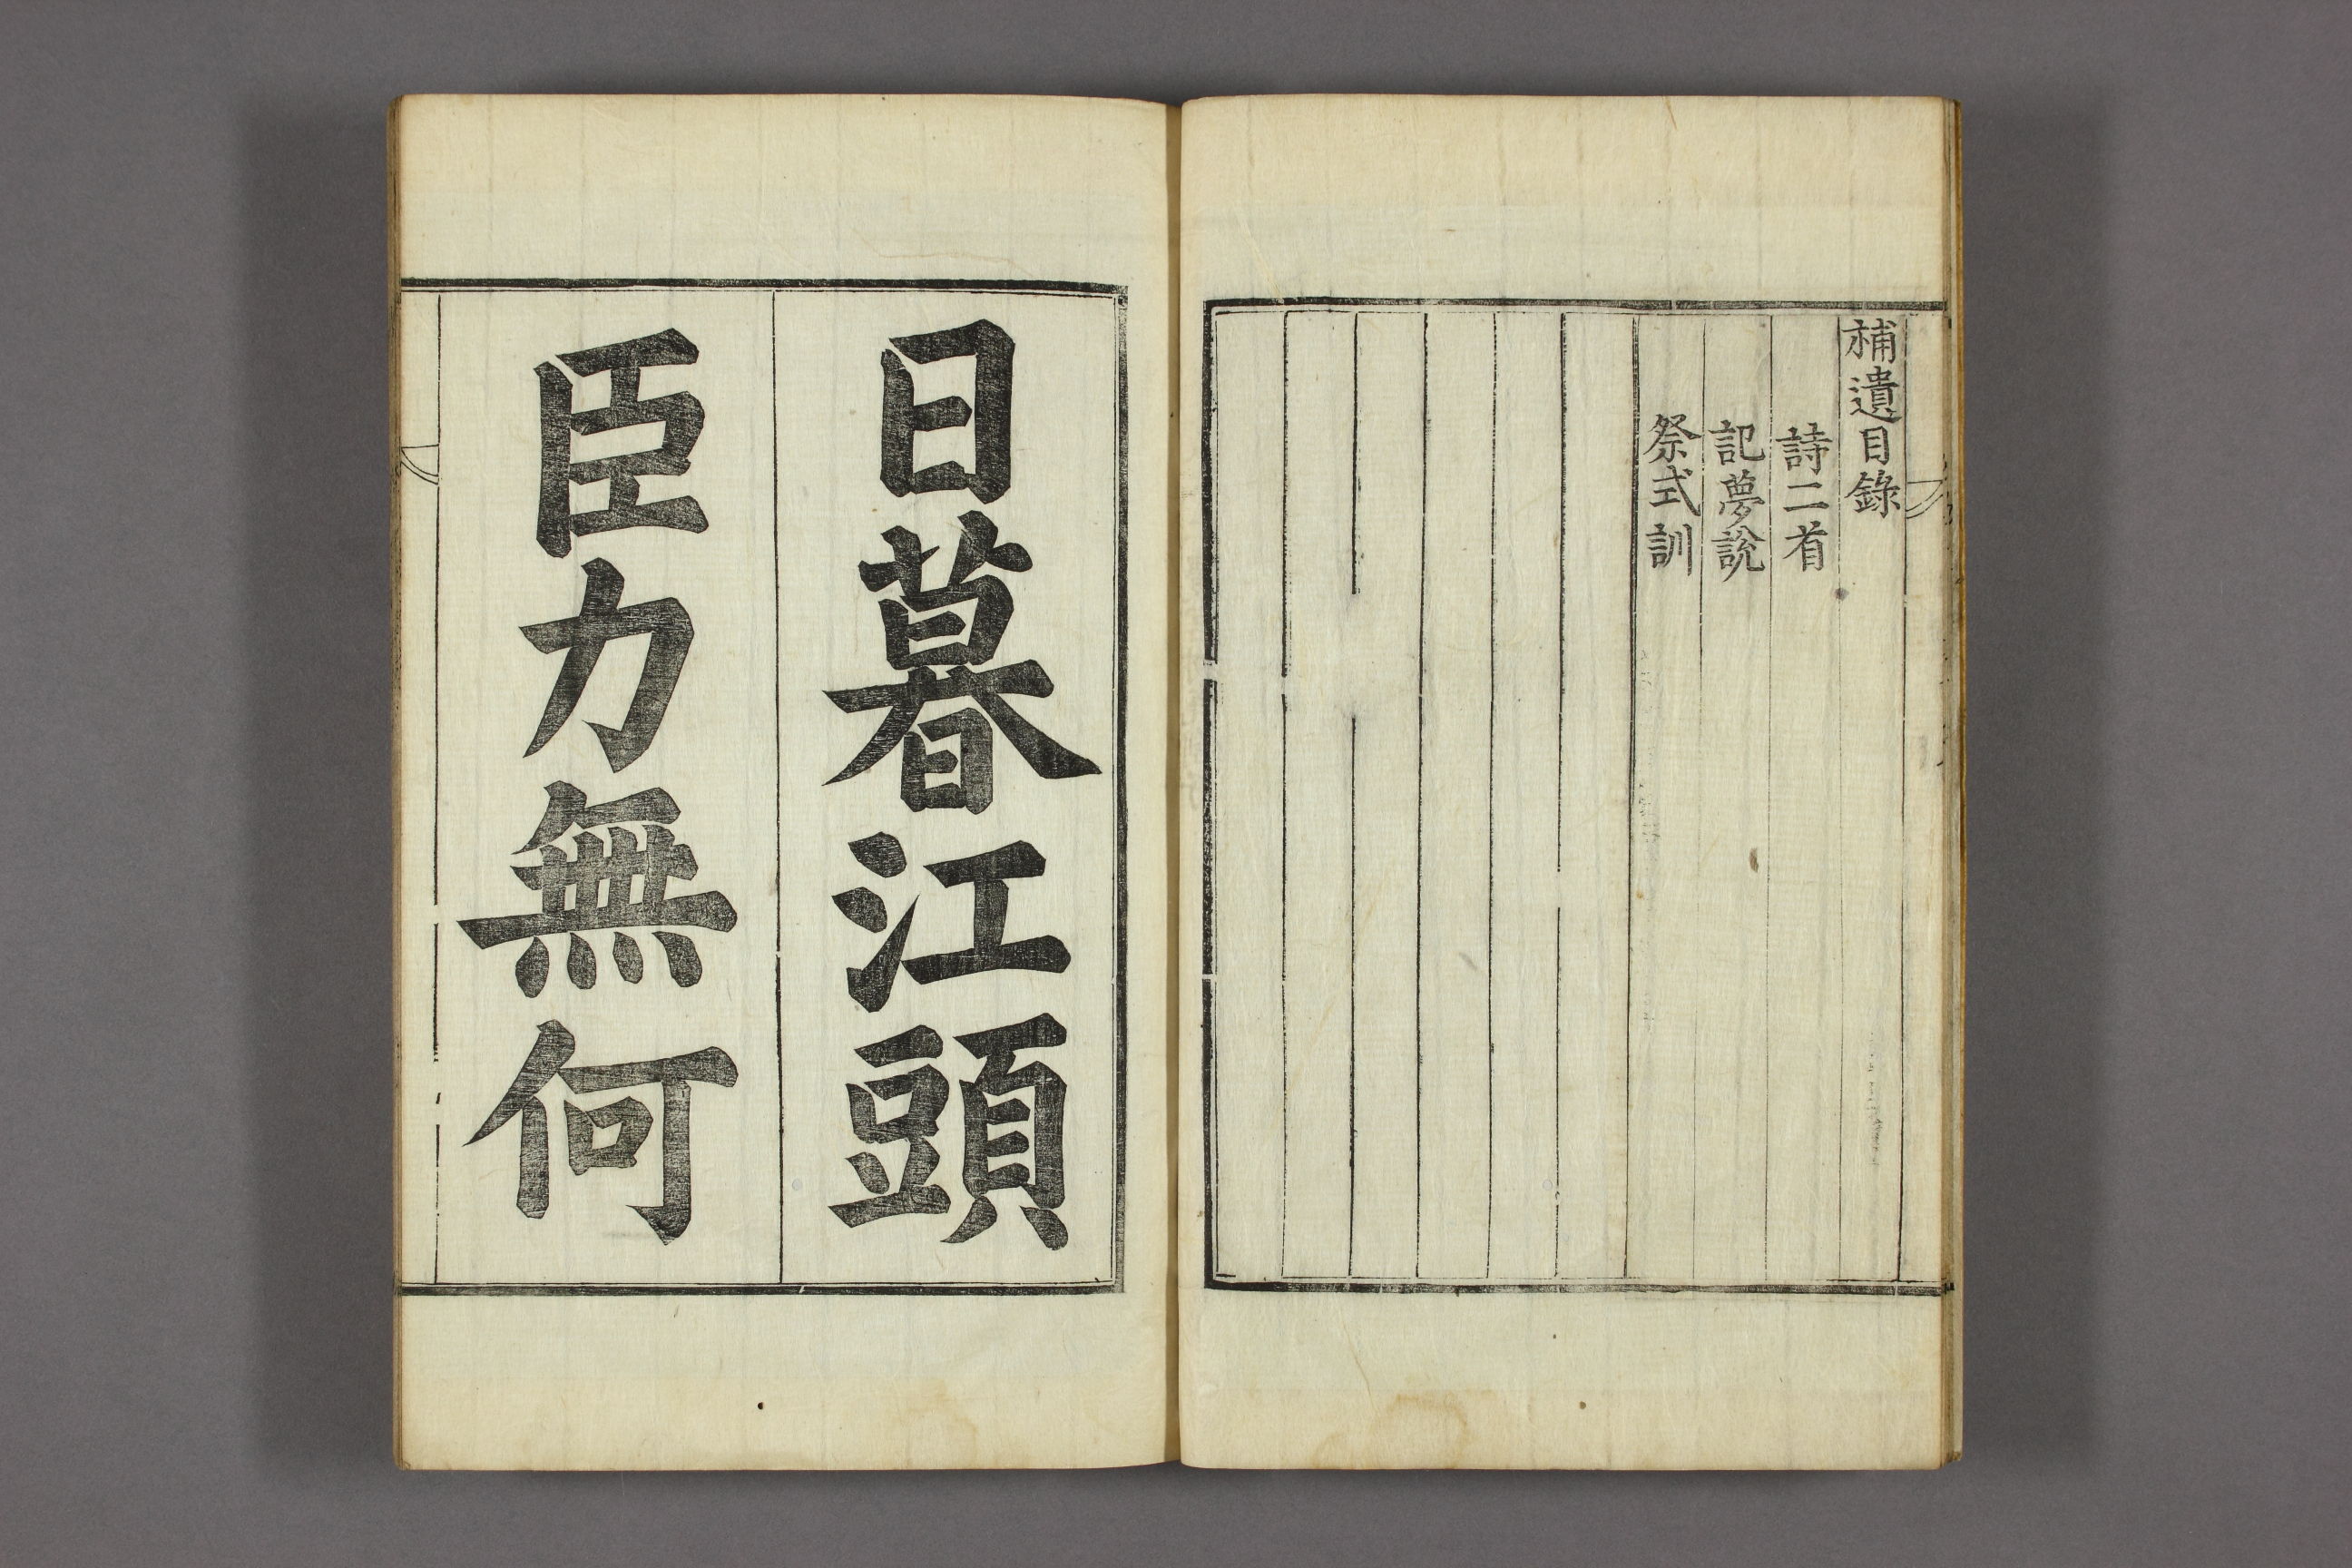 補遺目錄
詩二首
記夢說
祭式訓
日暮江頭
臣力無何